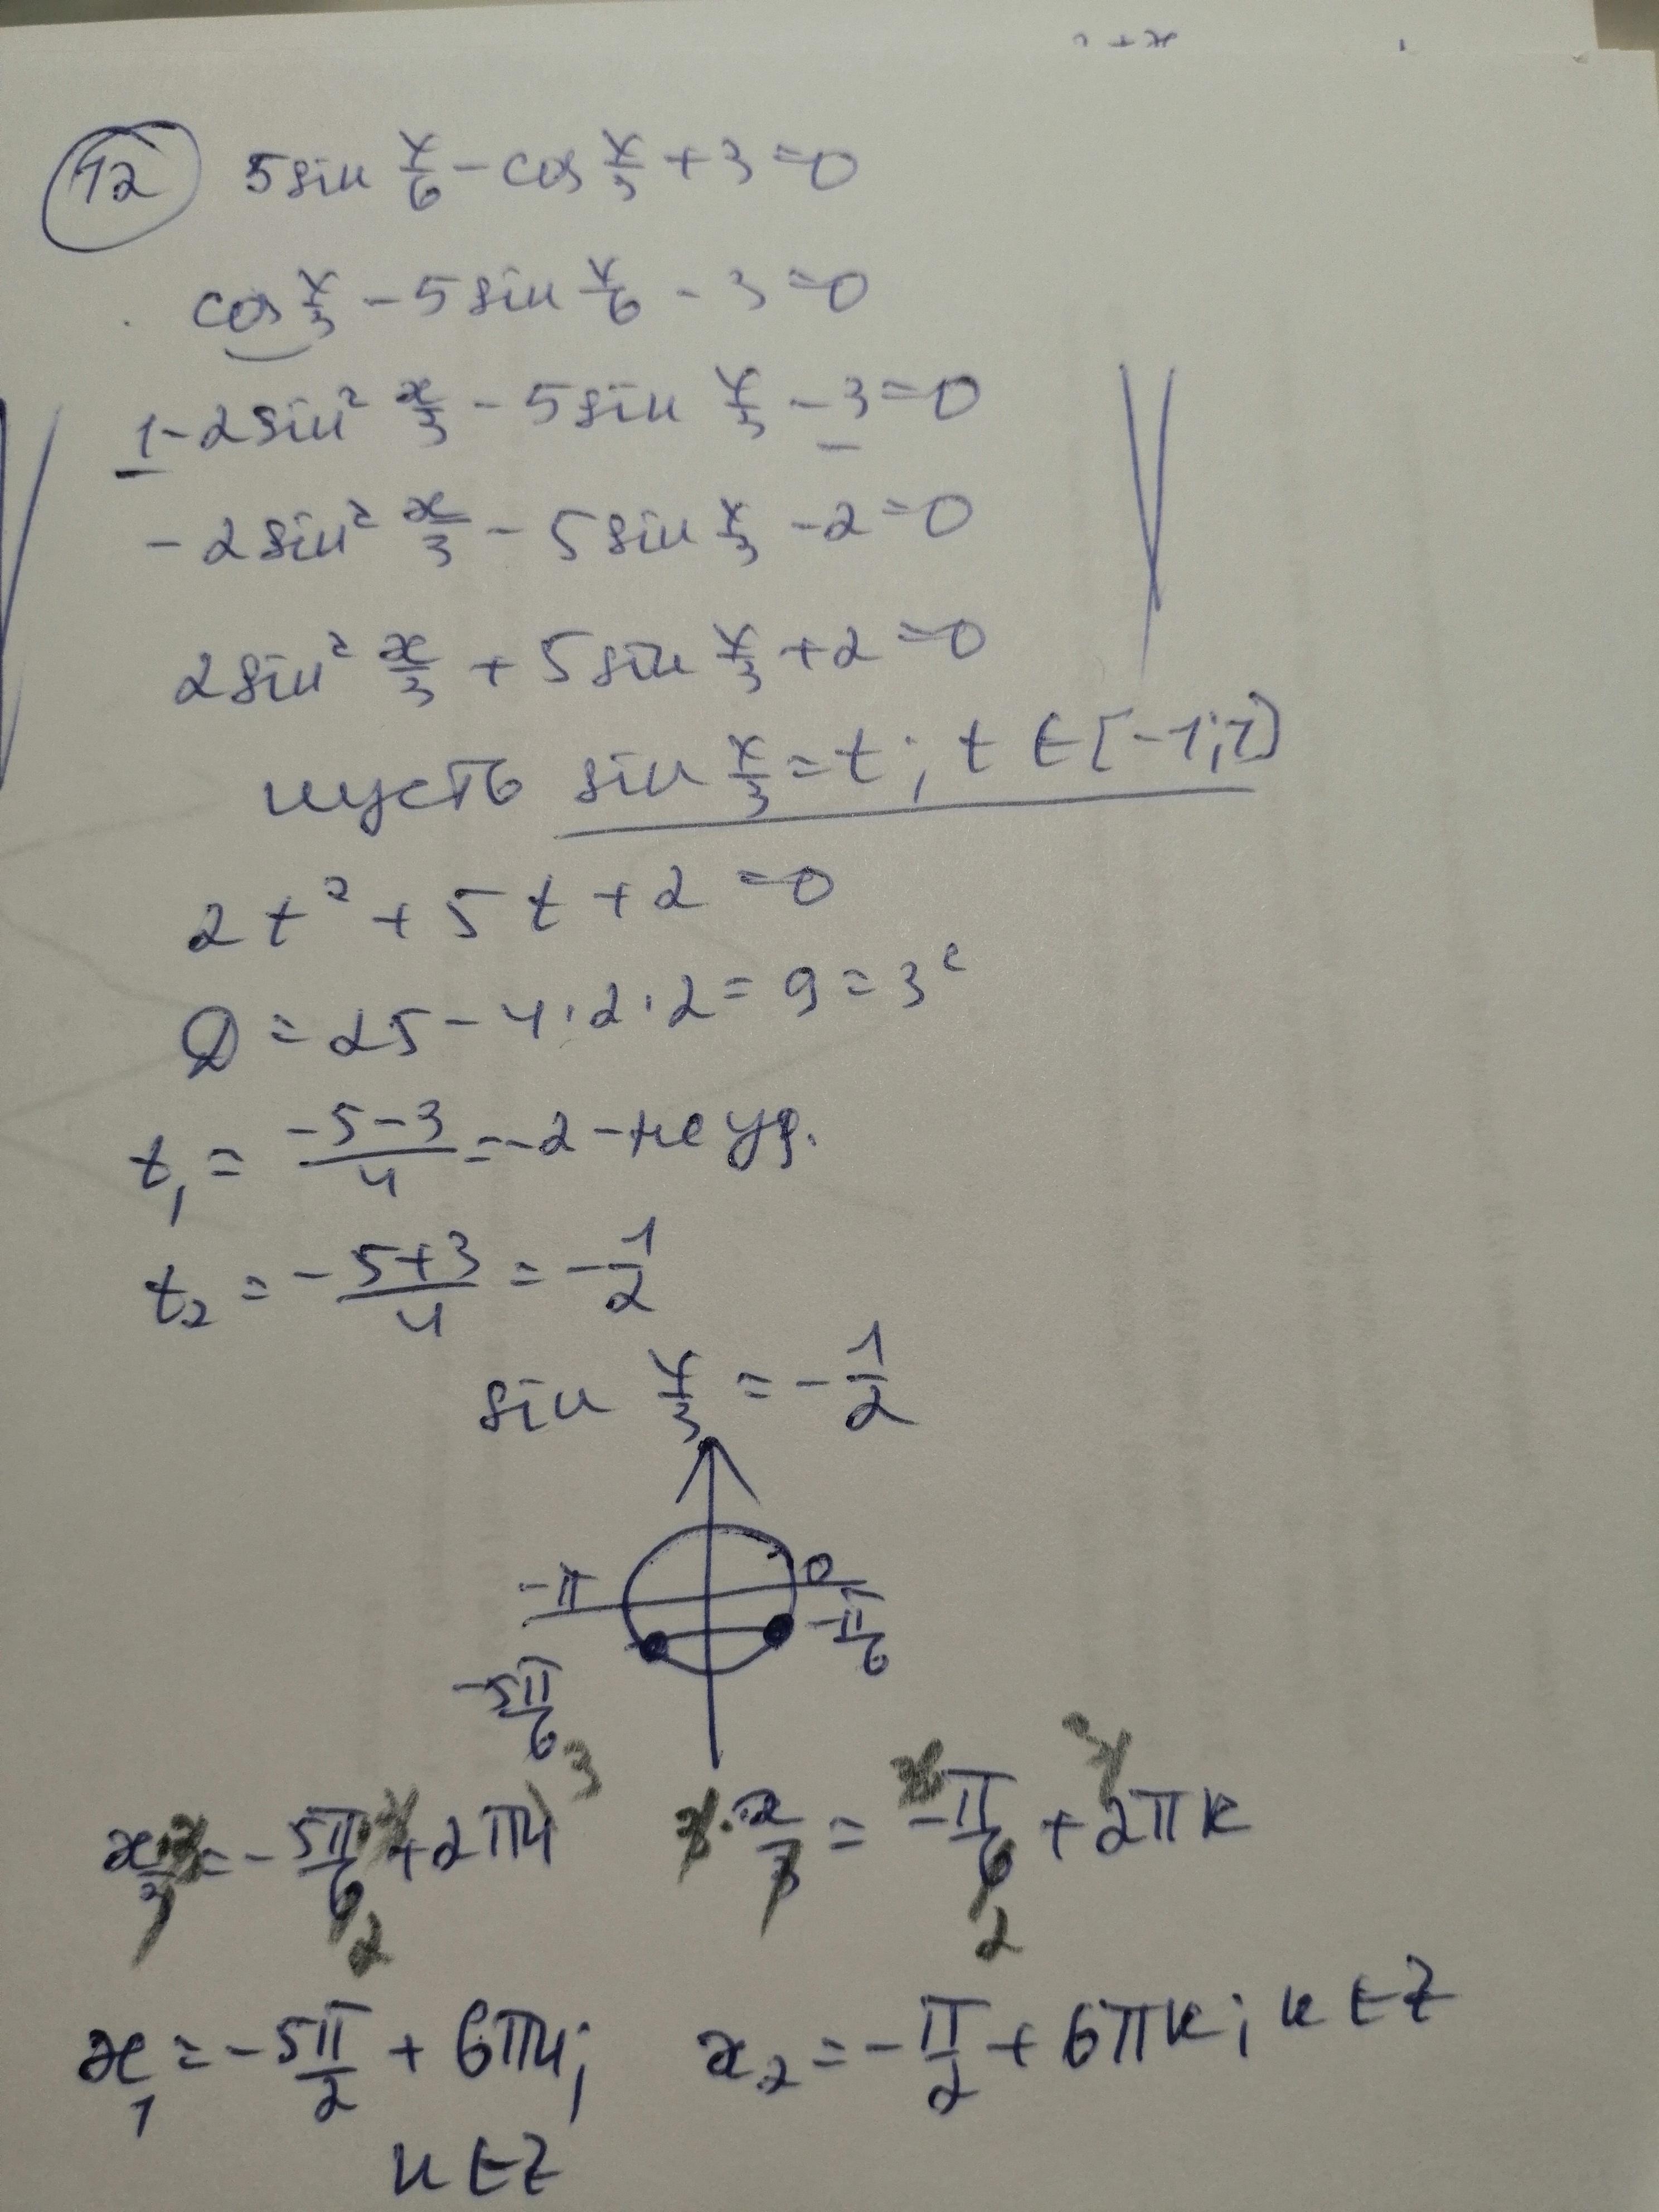 12 5sin x/6 - cos x/3 + 3 = 0
cos x/3 - 5sin x/6 - 3 = 0
1 - 2sin² x/3 - 5sin x/3 - 3 = 0
-2sin² x/3 - 5sin x/3 - 2 = 0
2sin² x/3 + 5sin x/3 + 2 = 0
пусть sin x/3 = t; t ∈ [-1; 1]
2t² + 5t + 2 = 0
D = 25 - 4·2·2 = 9 = 3²
t₁ = (-5-3)/4 = -2 - не уд.
t₂ = (-5+3)/4 = -1/2
sin x/3 = -1/2
-π 0
-5π/6 -π/6
x/3 ·3 = -5π/6 ·3 + 2πn ·3 3· x/3 = 3· -π/6 + 3· 2πk
2 2
x₁ = -5π/2 + 6πn; x₂ = -π/2 + 6πk; k ∈ Z
n ∈ Z